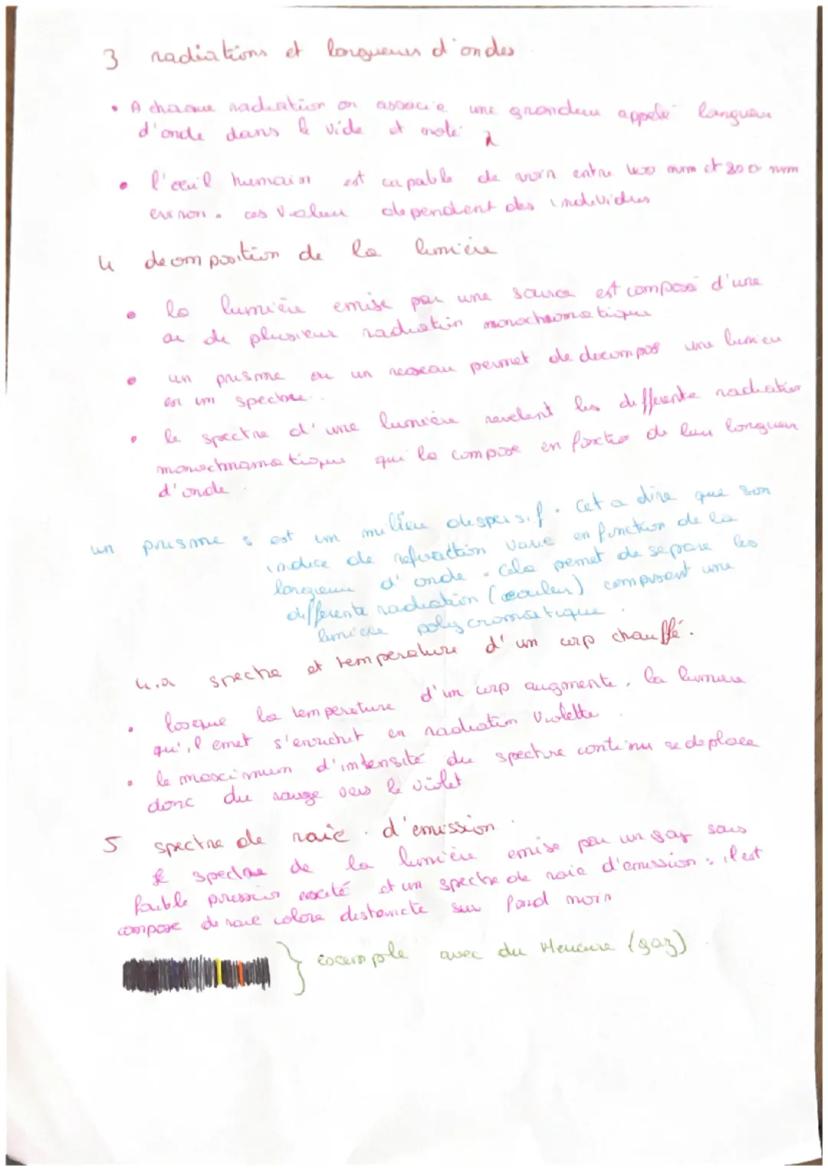 3 radiations et longueurs d'ondes
• A chaque radiation on associe une grandeur appelé longueur
d'onde dans le vide et noté λ
• l'oeuil humain est capable de voir entre 400 mm et 800 mm
environ. ces valeur dependent des individus
4 decomposition de la lumière
• la lumière emise par une source est composé d'une
ou de plusieur radiation monochromatique
• un prisme ou un reseau permet de decompos une lumieu
en un spectre.
• le spectre d'une lumière revelent les differente radiation
monochromatique qui la compose en fonction de leur longueur
d'onde.
un prisme : est un milieu dispersif. Cet a dire que son
indice de refraction varie en fonction de la
longueur d'onde. Cela permet de separe les
differente radiation (couleur) composant une
lumiere polycromatique.
4.a spectre et temperature d'un corp chauffé.
• losque la temperature d'un corp augmente, la lumiere
qu'il emet s'enrichit en radiation violette.
• le maximum d'intensité du spectre continu se deplace
donc du rouge vers le violet
5 spectre de raie d'emission.
le spectre de la lumière emise par un gaz sous
faible pression excité et un spectre de raie d'emission : il est
compose de raie colore distincte sur fond noir
} exemple avec du Mercure (gaz)